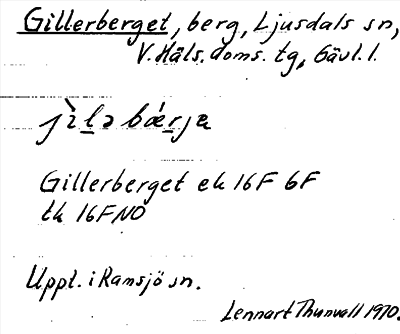 Gillerberget, berg, Ljusdals sn,
V. Häls. doms. tg, Gävl. l.
jìlə bǽrja
Gillerberget ek 16F 6F
tk 16F NO
Uppt. i Ramsjö sn.
Lennart Thunvall 1970.